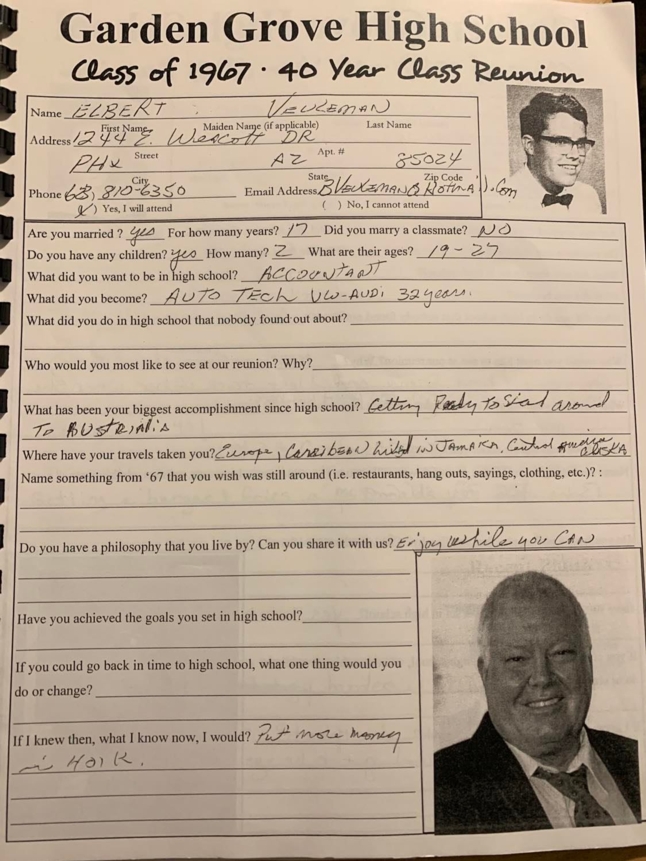 Garden Grove High School
Class of 1967 · 40 Year Class Reunion
Name ELBERT VEULEMAN
First Name Maiden Name (if applicable) Last Name
Address 1244 E. Wescott DR
Street Apt. #
PHX AZ 85024
City State Zip Code
Phone 810-6350 Email Address
Yes, I will attend ( ) No, I cannot attend
Are you married? yes For how many years? 17 Did you marry a classmate? NO
Do you have any children? yes How many? 2 What are their ages? 19-27
What did you want to be in high school? ACCOUNTANT
What did you become? AUTO TECH VW-AUDI 32 years.
What did you do in high school that nobody found out about?
Who would you most like to see at our reunion? Why?
What has been your biggest accomplishment since high school? Getting Ready To Sail around
To
Where have your travels taken you? Europe, Carribean in JAMAICA, Central America
ALASKA
Name something from ‘67 that you wish was still around (i.e. restaurants, hang outs, sayings, clothing, etc.)? :
Do you have a philosophy that you live by? Can you share it with us? Enjoy while you CAN
Have you achieved the goals you set in high school?
If you could go back in time to high school, what one thing would you
do or change?
If I knew then, what I know now, I would? Put more money
in 401K.